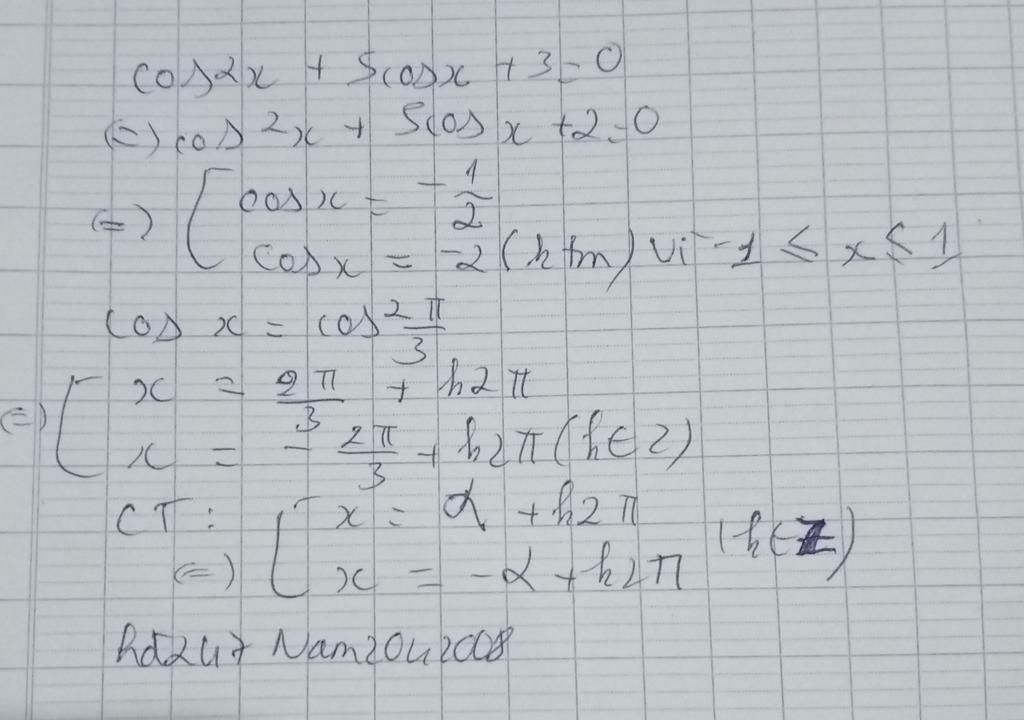 cos2x + 5cosx + 3 = 0
(=) cos 2x + 5cos x + 2 = 0
(=) [ cos x = - 1/2
cos x = -2 (ktm) vì -1 ≤ x ≤ 1
cos x = cos 2π/3
(=) [ x = 2π/3 + k2π
x = - 2π/3 + k2π (k∈Z)
CT: [ x = α + k2π
(=) x = -α + k2π (k∈Z)
hd247 Nam2042008